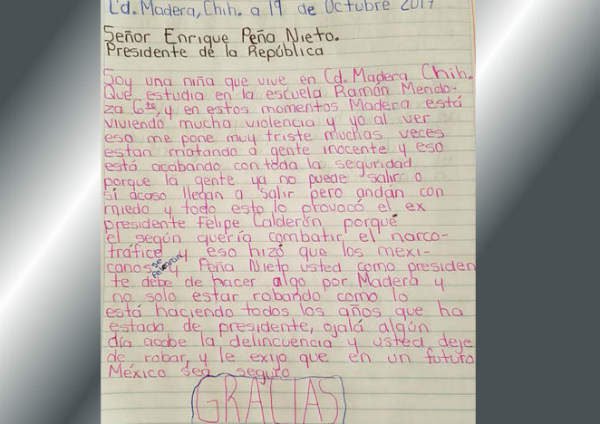 Cd. Madera, Chih. a 19 de Octubre 2017
Señor Enrique Peña Nieto.
Presidente de la República
Soy una niña que vive en Cd. Madera Chih.
Que estudia en la escuela Ramón Mendo-
za 6to, y en estos momentos Madera está
viviendo mucha violencia y yo al ver
eso me pone muy triste muchas veces
estan matando a gente inocente y eso
está acabando con toda la seguridad
porque la gente ya no puede salir o
si acaso llegan a salir pero andan con
miedo y todo esto lo provocó el ex
presidente Felipe Calderón porqué
él según quería combatir el narco-
tráfico y eso hizó que los mexi-
canos se pelearan y Peña Nieto usted como presiden
te debe de hacer algo por Madera y
no solo estar robando como lo
está haciendo todos los años que ha
estado de presidente, ojalá algún
día acabe la delincuencia y usted deje
de robar, y le exijo que en un futuro
México sea seguro
GRACIAS